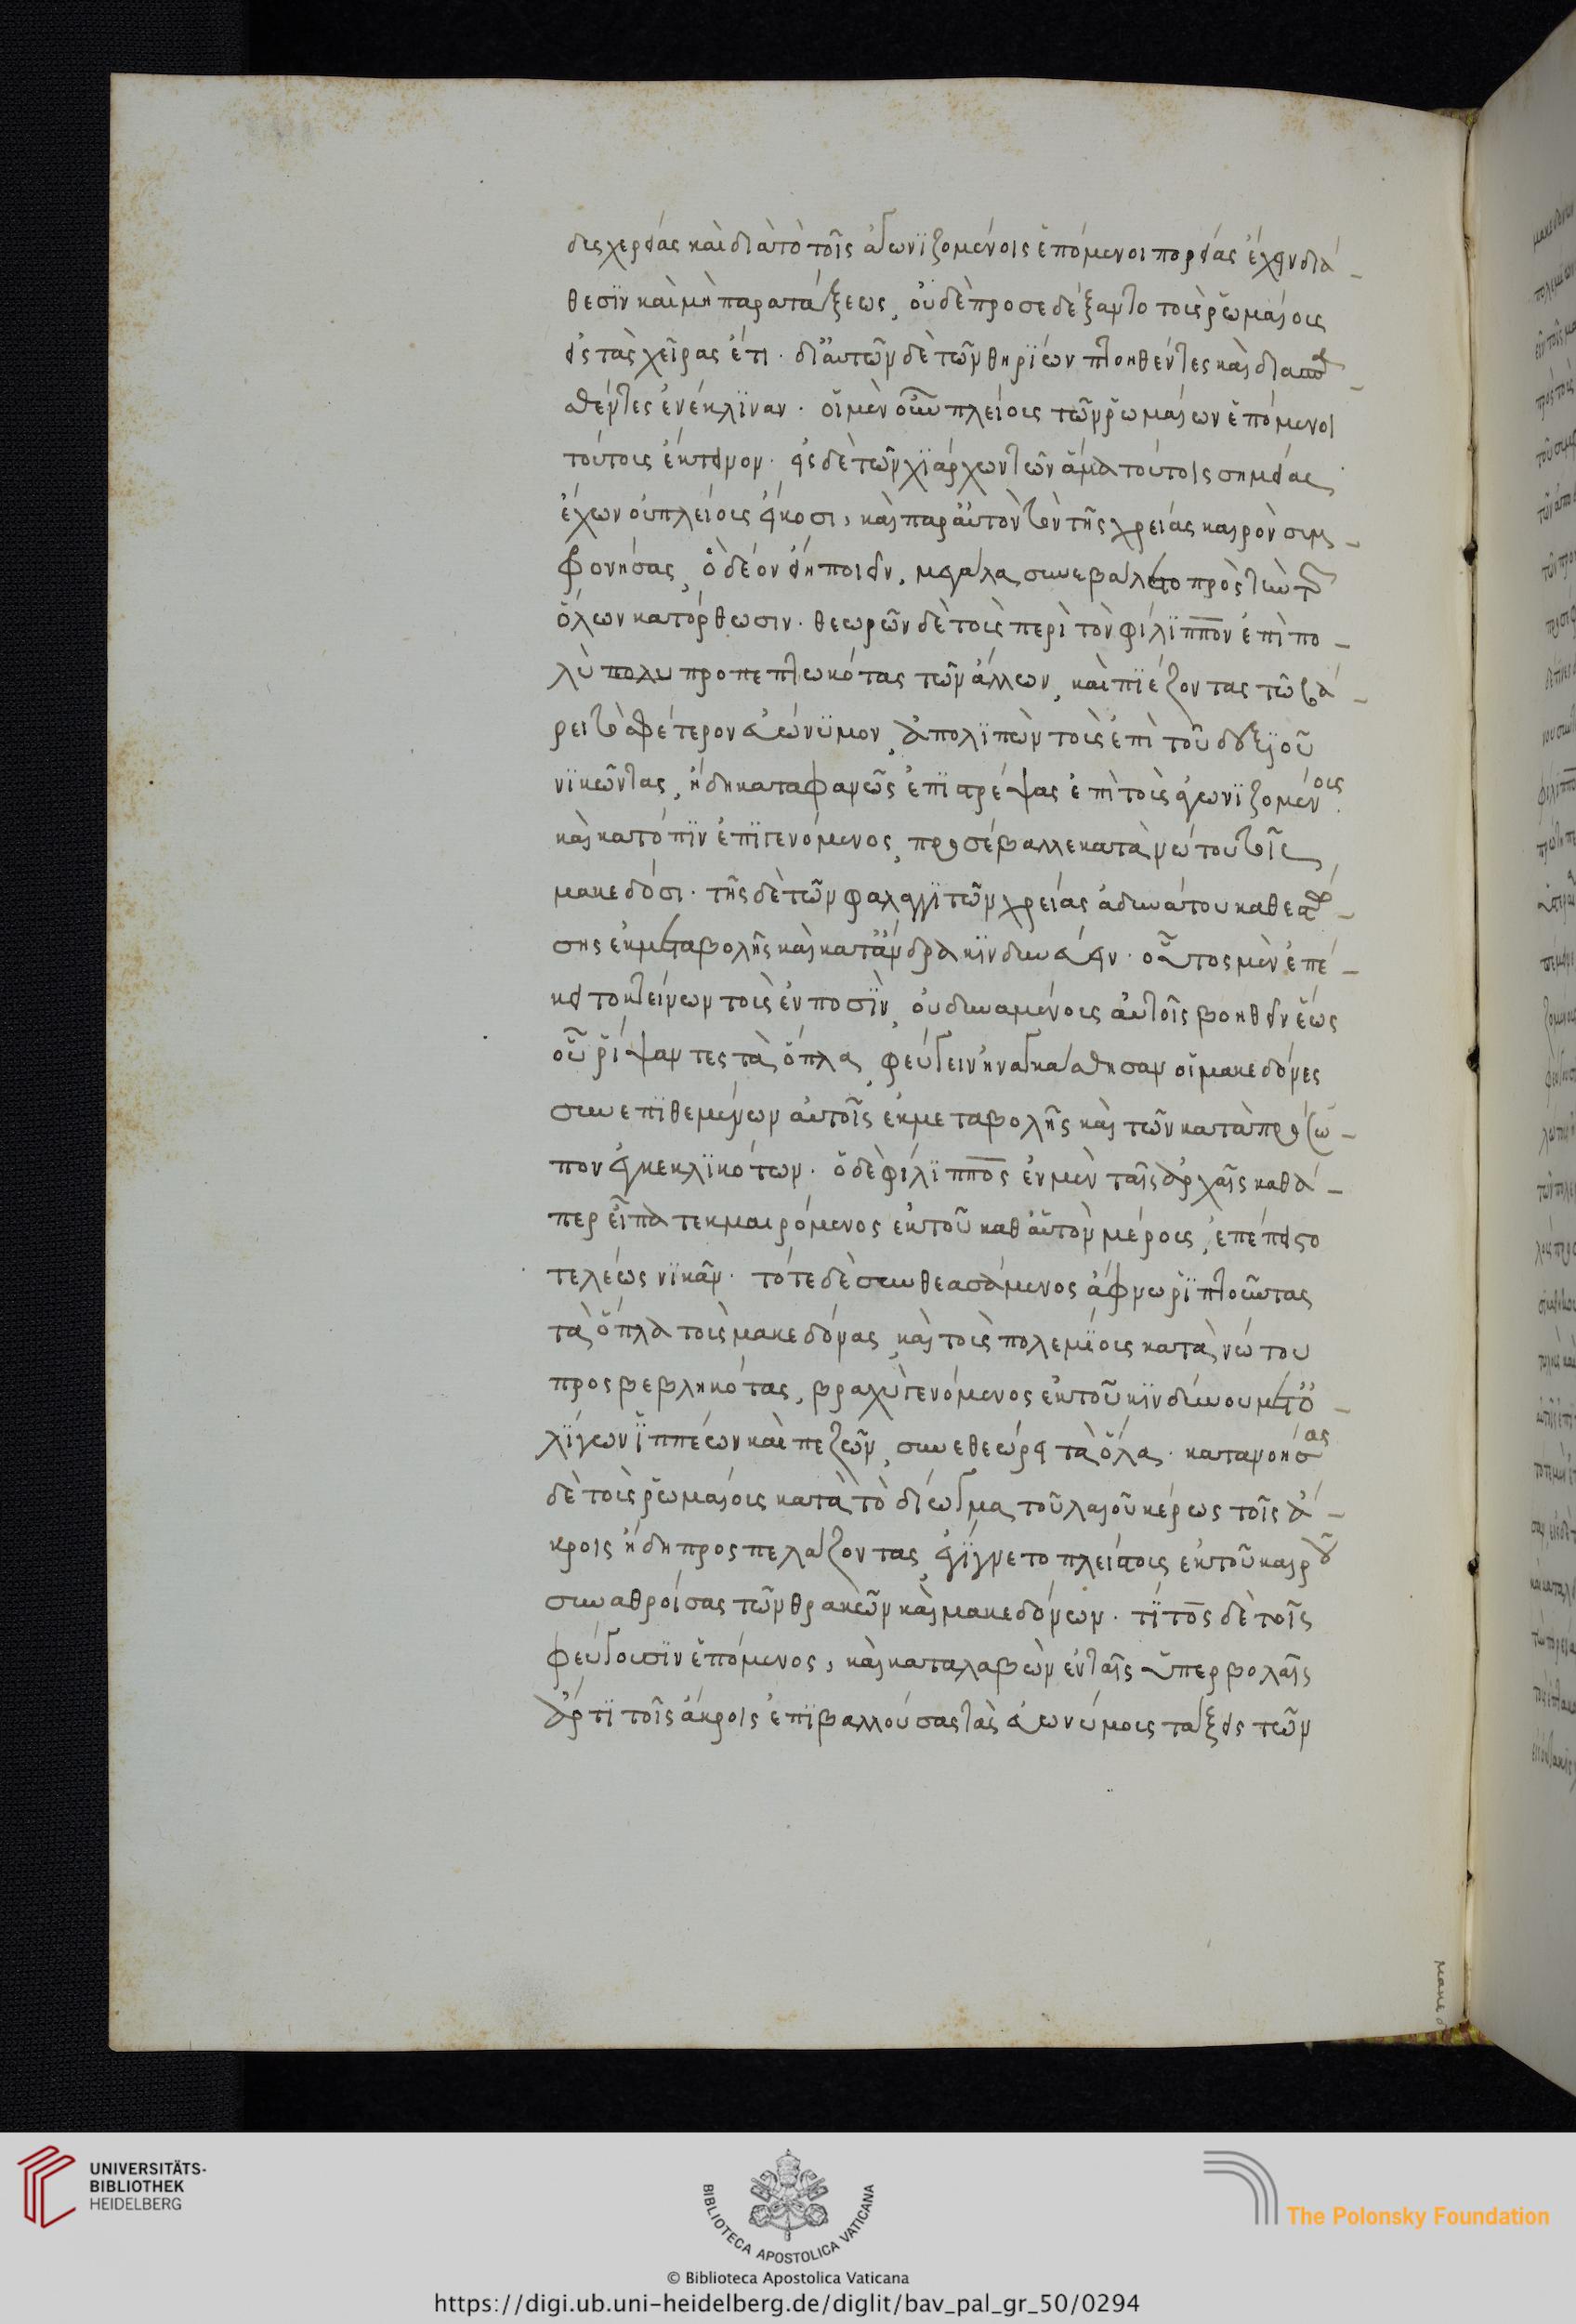 δυςχερείας καὶ διὰ τὸ τοῖς ἀγωνϊζομένοις ἑπόμενοι πορείας ἔχειν διά-
θεσϊν καὶ μὴ παρατάξεως, οὐδὲ προσεδέξαντο τοὺς ῥωμαίους
εἰς τὰς χεῖρας ἔτι· δι' αὐτῶν δὲ τῶν θηρϊων πτοηθέντες καὶ διασπα-
σθέντες ἐνέκλϊναν· οἱ μὲν οὖν πλείους τῶν ῥωμαίων ἑπόμενοι
τούτοις ἔκτεινον· εἷς δὲ τῶν χϊάρχων τῶν ἅμα τούτοις σημείας
ἔχων οὐ πλείους εἴκοσι, καὶ παρ' αὐτὸν τὸν τῆς χρείας καιρὸν συμ-
φρονήσας, ὃ δέον εἴη ποιεῖν, μεγάλα συνεβάλετο πρὸς τὴν τῶν
ὅλων κατόρθωσιν· θεωρῶν δὲ τοὺς περὶ τὸν φίλϊππον ἐπὶ πο-
λὺ πολυ προπεπτωκότας τῶν ἄλλων, καὶ πϊέζοντας τῷ βά-
ρει τὸ σφέτερον εὐώνϋμον, ἀπολϊπὼν τοὺς ἐπὶ τοῦ δεξϊοῦ
νϊκῶντας, ἤδη καταφανῶς ἐπϊστρέψας ἐπὶ τοὺς ἀγωνϊζομένους
καὶ κατόπϊν ἐπϊγενόμενος, προσέβαλλε κατὰ νώτου τοῖς
μακεδόσι· τῆς δὲ τῶν φαλαγγϊτῶν χρείας ἀδυνάτου καθεστώ-
σης ἐκ μεταβολῆς καὶ κατ' ἄνδρα κϊνδυνεύειν· οὗτος μὲν ἐπέ-
κειτο κτείνων τοὺς ἐν ποσϊν, οὐ δυναμένους αὐτοῖς βοηθεῖν ἕως
οὗ ῥίψαντες τὰ ὅπλα, φεύγειν ἠναγκάσθησαν οἱ μακεδόνες
συνεπϊθεμένων αὐτοῖς ἐκ μεταβολῆς καὶ τῶν κατὰ πρόσω-
πον ἐγκεκλϊκότων· ὁ δὲ φίλϊππος ἐν μὲν ταῖς ἀρχαῖς καθά-
περ εἶπα τεκμαιρόμενος ἐκ τοῦ καθ' αὑτὸν μέρους, ἐπέπειστο
τελέως νϊκᾶν· τότε δὲ συνθεασάμενος ἄφνω ῥϊπτοῦντας
τὰ ὅπλα τοὺς μακεδόνας, καὶ τοὺς πολεμϊους κατὰ νώτου
προςβεβληκότας, βραχὺ γενόμενος ἐκ τοῦ κϊνδύνου μετ' ὀ-
λϊγων ϊππέων καὶ πεζῶν, συνεθεώρει τὰ ὅλα· κατανοήσας
δὲ τοὺς ῥωμαίους κατὰ τὸ δίωγμα τοῦ λαιοῦ κέρως τοῖς ἄ-
κροις ἤδη προςπελάζοντας, ἐγϊγνετο πλείστους ἐκ τοῦ καιροῦ
συναθροίσας τῶν θρακῶν καὶ μακεδόνων· τϊτος δὲ τοῖς
φεύγουσϊν ἑπόμενος, καὶ καταλαβὼν ἐν ταῖς ὑπερβολαῖς
ἄρτϊ τοῖς ἄκροις ἐπϊβαλλούσας τὰς εὐωνύμους τάξεις τῶν
μακεδ
UNIVERSITÄTS-
BIBLIOTHEK
HEIDELBERG
BIBLIOTECA APOSTOLICA VATICANA
The Polonsky Foundation
© Biblioteca Apostolica Vaticana
https://digi.ub.uni-heidelberg.de/diglit/bav_pal_gr_50/0294